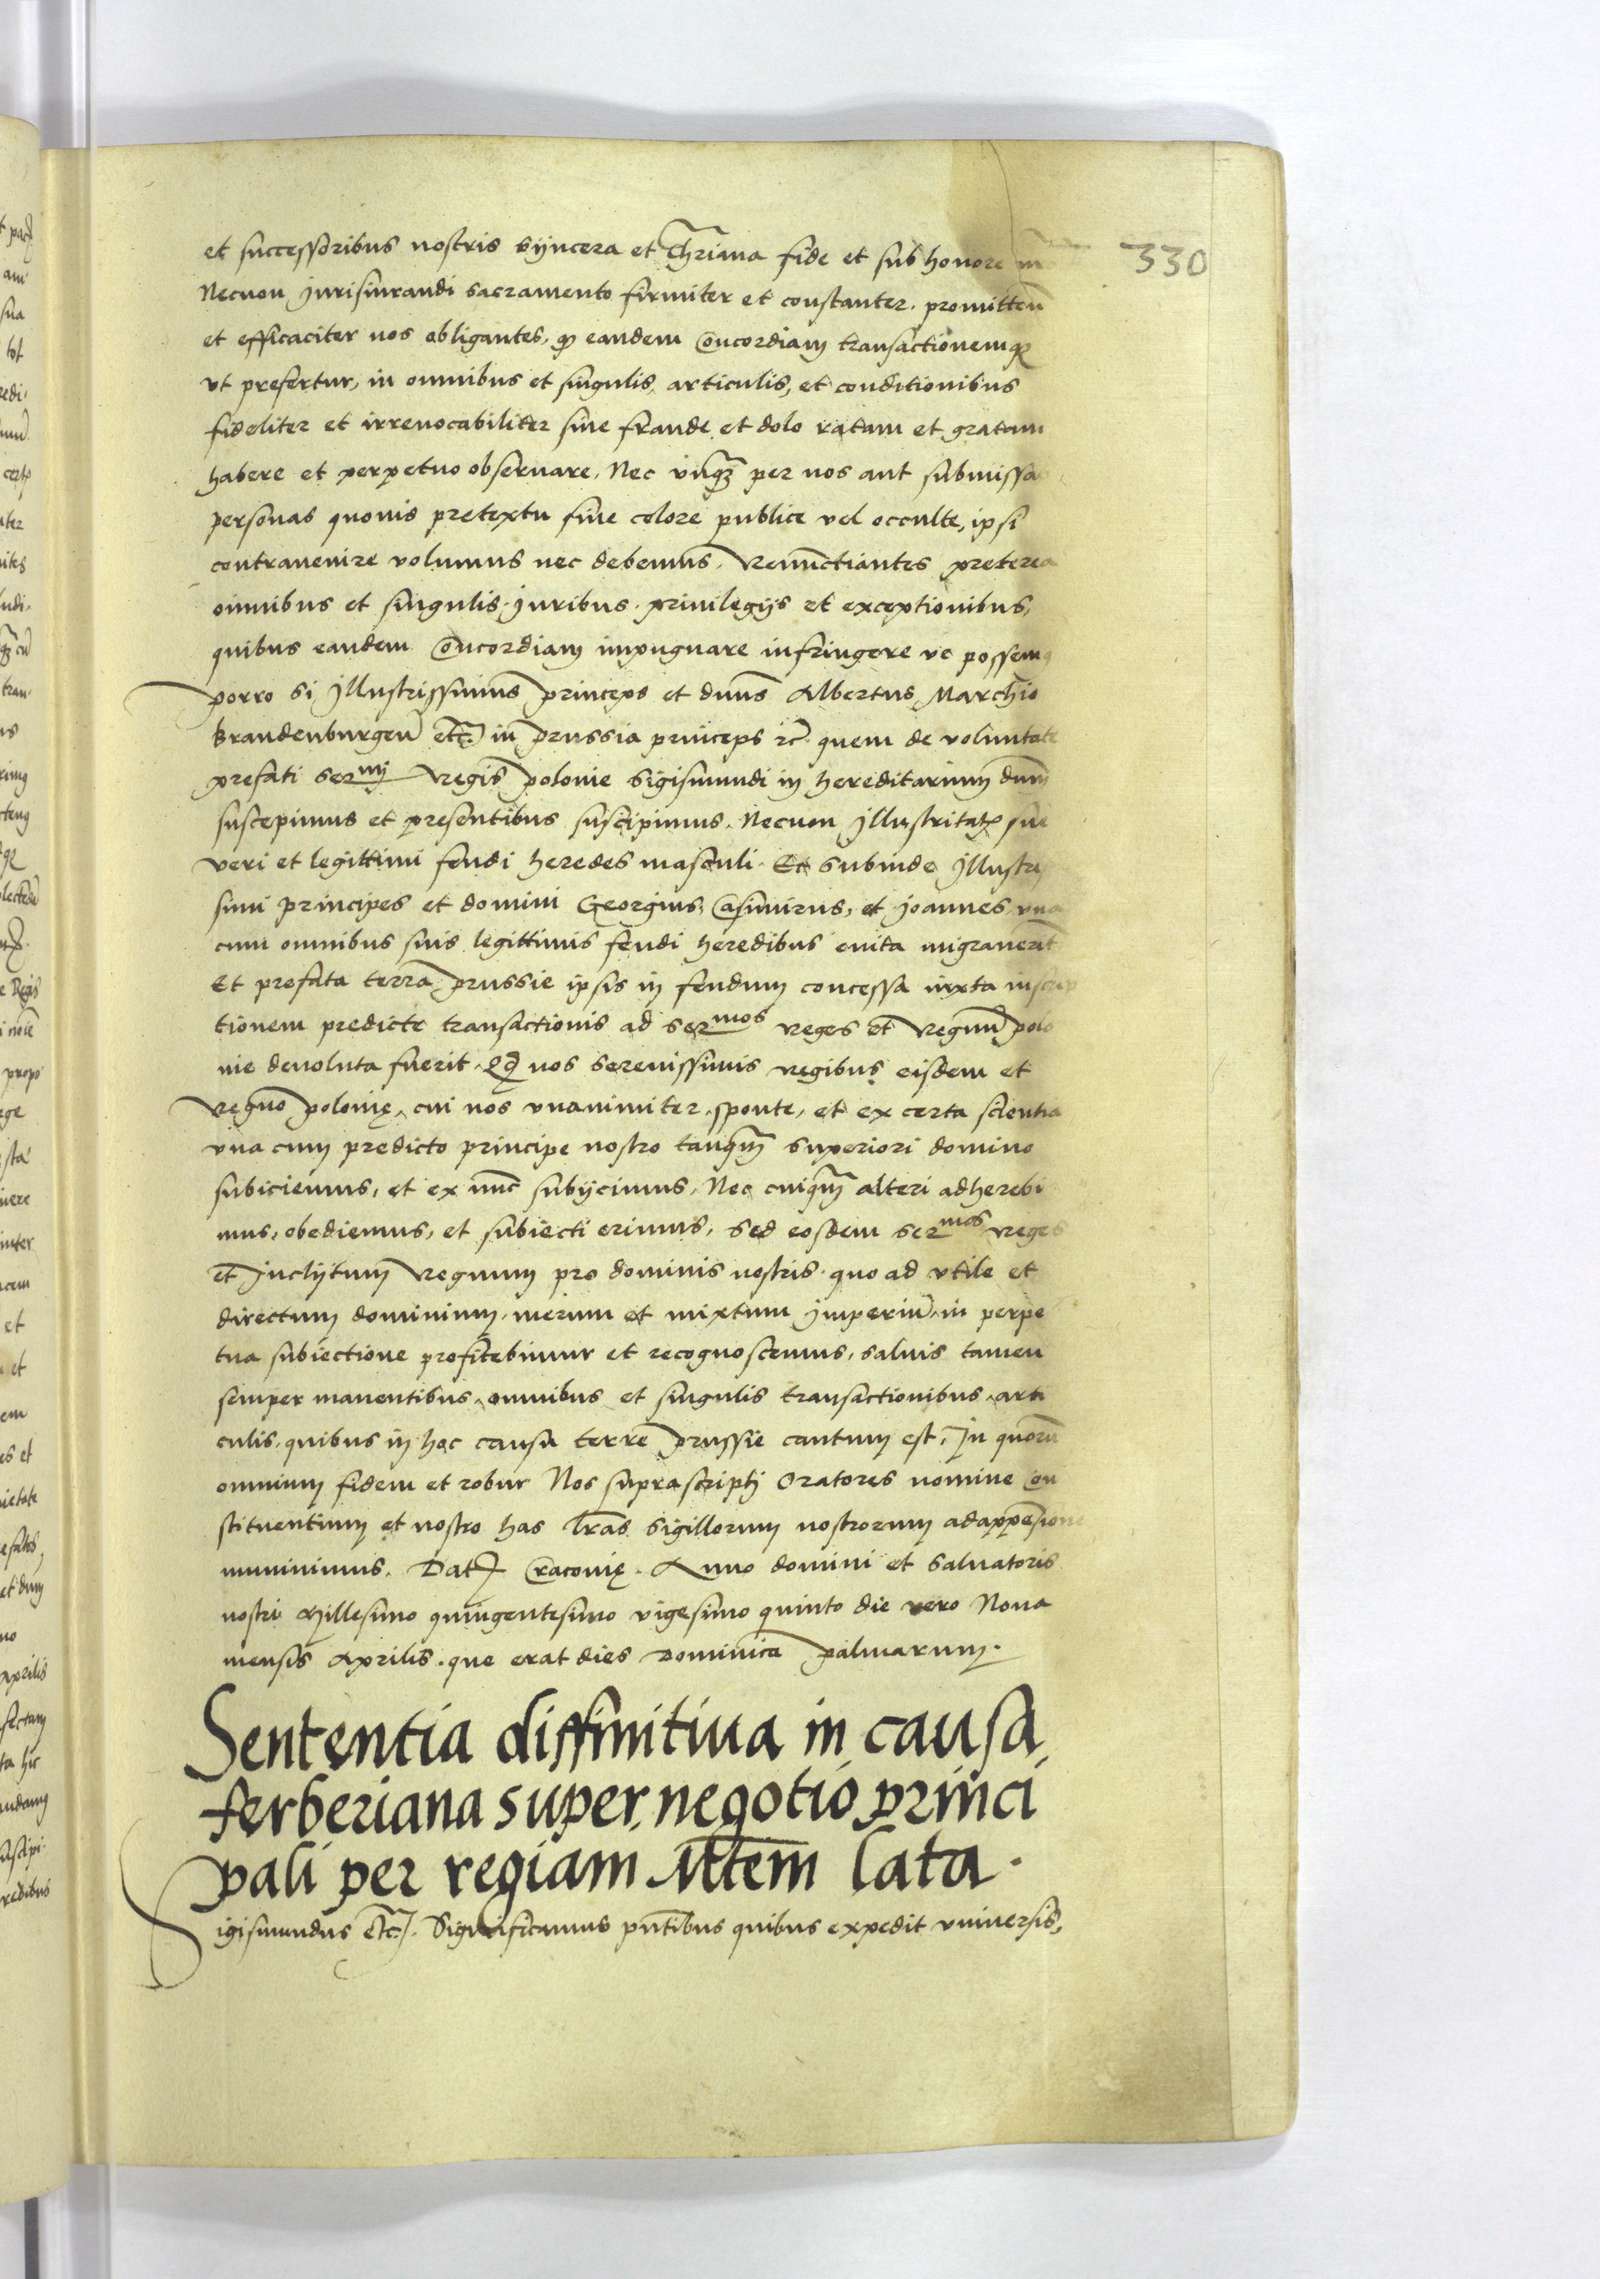 330
et successoribus nostris syncera et Chriana fide et sub honore
Necnon jurisiurandi sacramento firmiter et constanter. promitten
et efficaciter nos obligantes, qd eandem Concordiam transactionemq
vt prefertur, in omnibus et singulis articulis, et conditionibus
fideliter et irreuocabiliter sine fraude et dolo ratam et gratam
habere et perpetuo obseruare, Nec vnqz per nos aut submissa
personas quouis pretextu siue colore publice vel occulte, ipsi
contrauenire volumus nec debemus, Renunctiantes preterea
omnibus et singulis. juribus. priuilegijs et exceptionibus,
quibus eandem Concordiam impugnare infringere ve possem
porro si jllustrissimus princeps et dnus Albertus Marchio
Brandenburgen etc. in Prussia princeps rc. quem de voluntate
prefati sermi Regis polonie Sigismundi in hereditarium dnm
suscepimus et presentibus suscipimus, Necnon jllustritatis sue
veri et legittimi feudi heredes masculi. Et subinde jllustris
simi principes et domini Georgius, Casimirus, et joannes, vna
cum omnibus suis legittimis feudi heredibus euita migrauerit
Et prefata terra Prussie ipsis in feudum concessa iuxta inscrip
tionem predicte transactionis ad sermos reges et Regnu polo
nie deuoluta fuerit. Qd nos serenissimis regibus eisdem et
Regno polonię, cui nos vnanimiter, sponte, et ex certa scientia
vna cum predicto principe nostro tanqm superiori domino
subiciemus, et ex nunc subijcimus, Nec cuiqm alteri adherebi
mus, obediemus, et subiecti erimus, sed eosdem sermos reges
et Jnclytum Regnum pro dominis nostris. quo ad vtile et
directum dominium. merum et mixtum jmperiu, in perpe
tua subiectione profitebimur et recognoscemus, saluis tamen
semper manentibus, omnibus et singulis transactionibus, arti
culis, quibus in hac causa terre Prussie cautum est, Jn quoru
omnium fidem et robur Nos suprascripti Oratores nomine Con
stituentium et nostro has lras sigillorum nostrorum adappensione
muniuimus. Dat Cracouię. Anno domini et saluatoris
nostri Millesimo quingentesimo vigesimo quinto die vero Nona
mensis Aprilis. que erat dies Dominica palmarum.
Sententia diffinitiua in causa
ferberiana super negotio princi
pali per regiam Mtem lata.
Sigismundus etc. Significamus pntibus quibus expedit vniuersis,